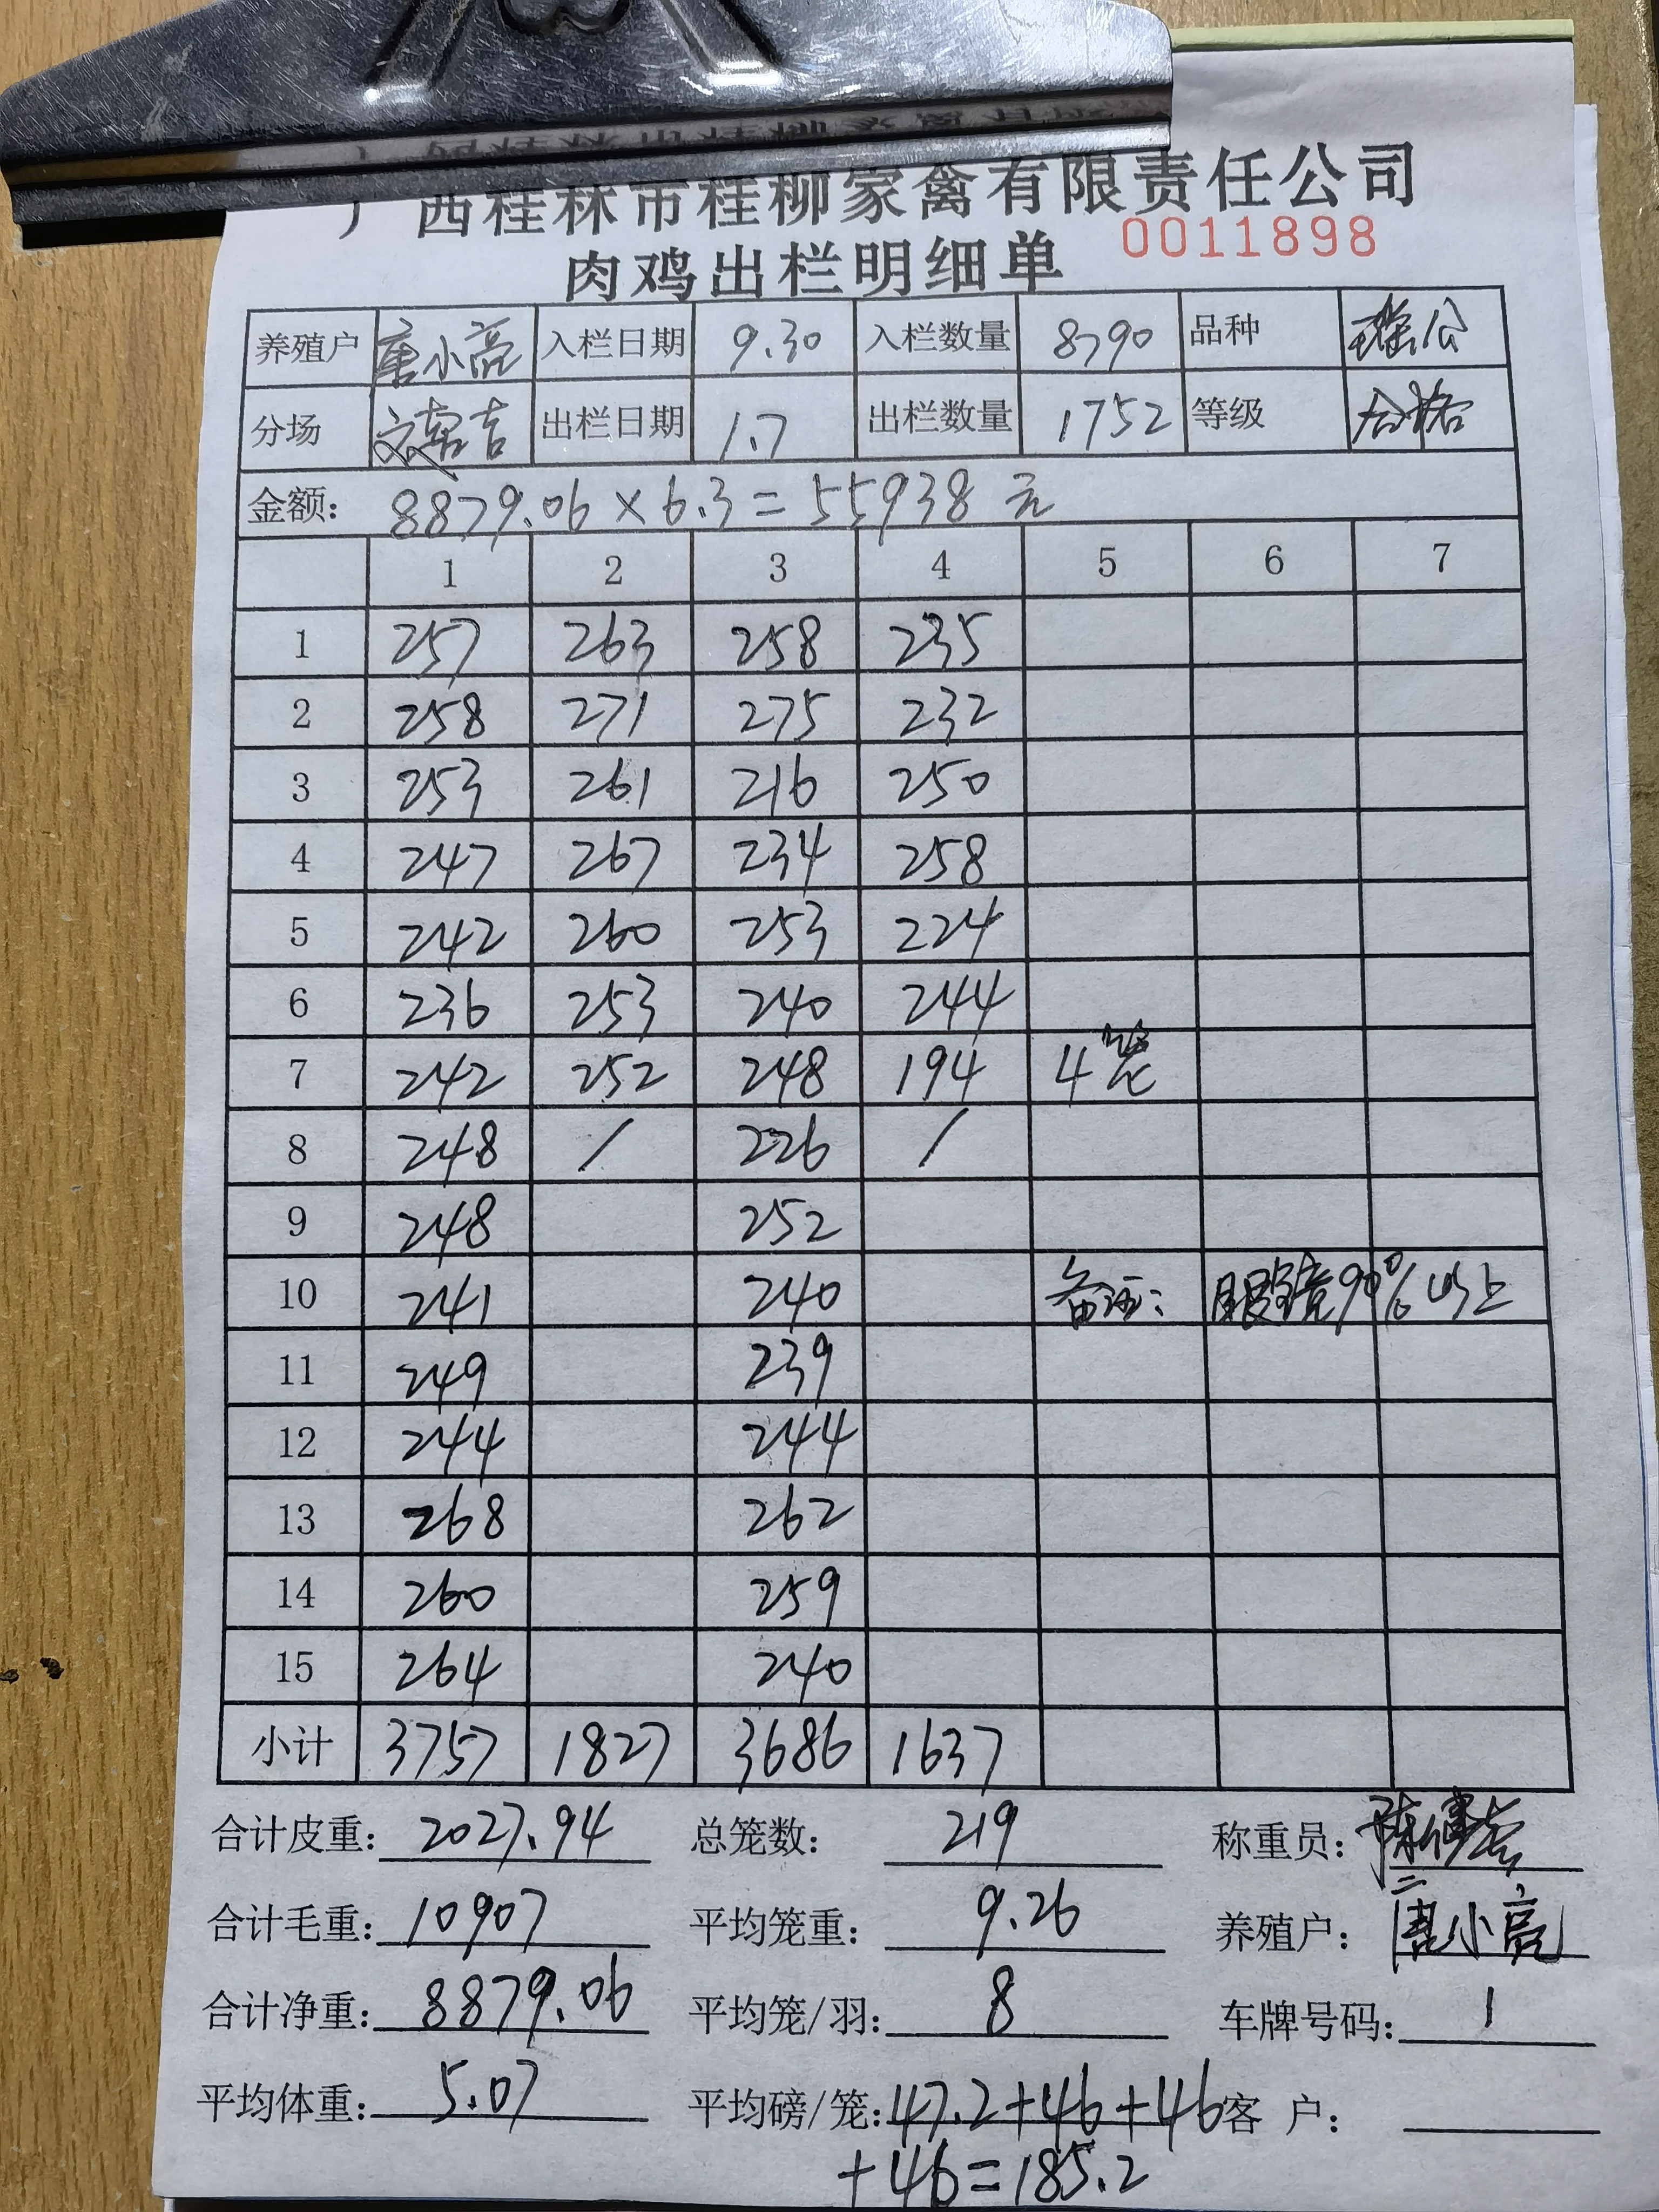 广西桂林市桂柳家禽有限责任公司
肉鸡出栏明细单 0011898
养殖户 唐小亮 入栏日期 9.30 入栏数量 8790 品种 瑶公
分场 出栏日期 1.7 出栏数量 1752 等级 合格
金额: 8879.06×6.3=55938元
1 2 3 4 5 6 7
1 257 263 258 235
2 258 271 275 232
3 253 261 216 250
4 247 267 234 258
5 242 260 253 224
6 236 253 240 244
7 242 252 248 194 4笼
8 248 / 226 /
9 248 252
10 241 240 备注: 眼镜90%以上
11 249 239
12 244 244
13 268 262
14 260 259
15 264 240
小计 3757 1827 3686 1637
合计皮重: 2027.94 总笼数: 219 称重员:
合计毛重: 10907 平均笼重: 9.26 养殖户: 唐小亮
合计净重: 8879.06 平均笼/羽: 8 车牌号码: 1
平均体重: 5.07 平均磅/笼: 47.2+46+46 客 户:
+46=185.2